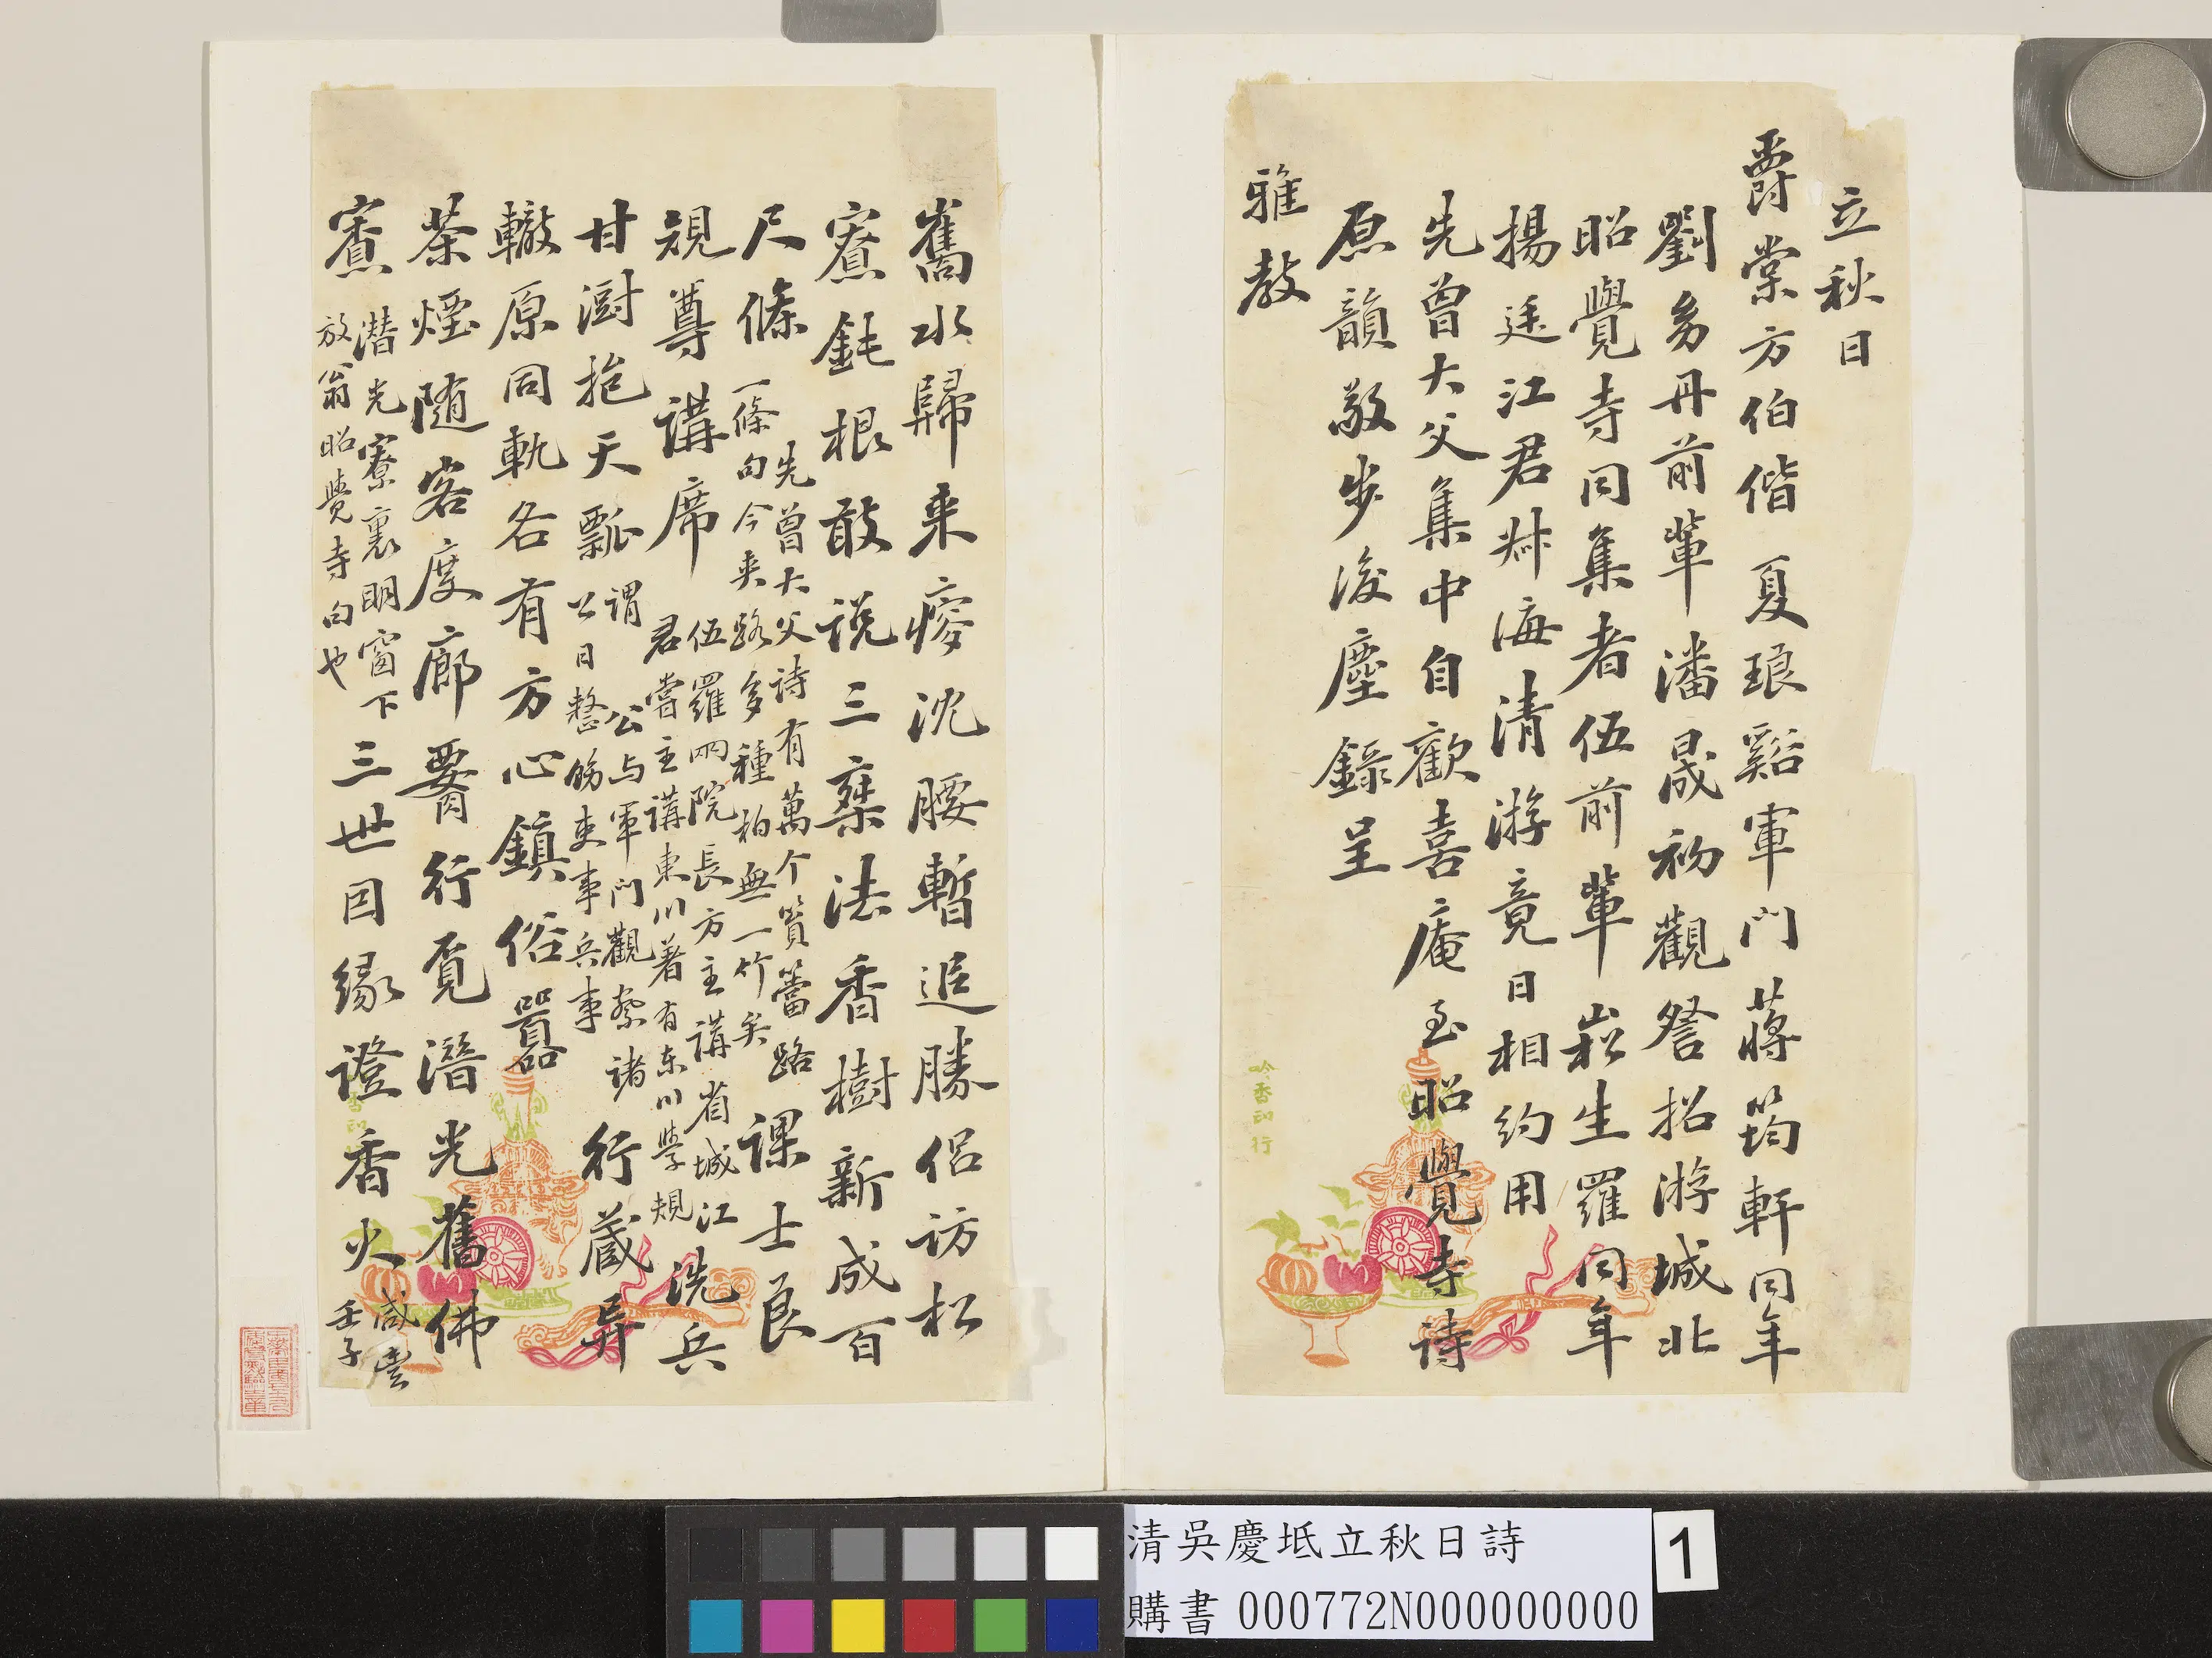 立秋日
爵棠方伯偕夏琅谿軍門蔣筠軒同年
劉幼丹前輩潘晟初觀詧招游城北
昭覺寺同集者伍前輩崧生羅同年
揚廷江君叔海清游竟日相約用
先曾大父集中自歡喜庵至昭覺寺詩
原韻敬步後塵錄呈
雅教
吟香
行
舊水歸來瘦沈腰暫追勝侶访松
寮鈍根敢说三乘法香樹新成百
尺條
先曾大父诗有萬个篔簹路
一條句今夾路多種柏無一竹矣
課士良
規尊講席
伍羅兩院長方主講省城江
君嘗主講東川著有东川學規
洗兵
甘澍挹天瓢
謂公与軍门觀察諸
公日整飭吏事兵事
行藏异
轍原同軌各有方心鎮俗囂
茶煙随客度廊腰行覓潛光舊佛
寮
潜光寮裏明窗下
放翁昭覺寺句也
三世因緣證香火
咸豐
壬子
清吳慶坻立秋日詩
購書 000772N000000000
1